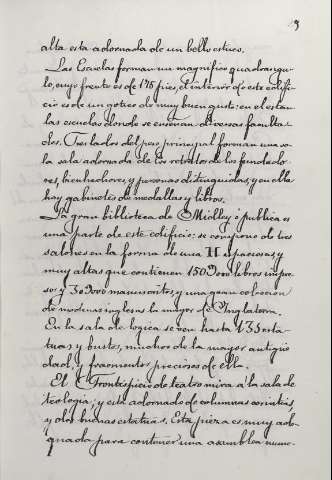 9
alta esta adornada de un bello estuco.
Las Escuelas forman un magnifico quadrangu-
lo, cuyo frente es de 175 pies, el interior de este edifi-
cio es de un gotico de muy buen gusto: en el estan
las escuelas donde se enseñan diversas faculta-
des. Tres lados del piso principal forman una so-
la sala adornada de los retratos de los fundado-
res, bienhechores, y personas distinguidas, y en ella
hay gabinetes de medallas y libros.
La gran biblioteca de ò publica es
una parte de este edificio: se compone de tres
salones en la forma de una H espaciosas y
muy altas que contienen 150000 libros impre-
sos y 30000 manuscritos, y una gran coleccion
de modenas inglesas la mayor de Inglaterra.
En la sala de logica se ven hasta 135 esta-
tuas y bustos, muchos de la mayor antigüe-
dad, y fragmentos preciosos de ella.
El Frontispicio de teatro mira a la sala de
teologia; y está adornado de columnas corintias,
y dos buenas estatuas. Esta pieza es muy ade-
quada para contener una asamblea nume-